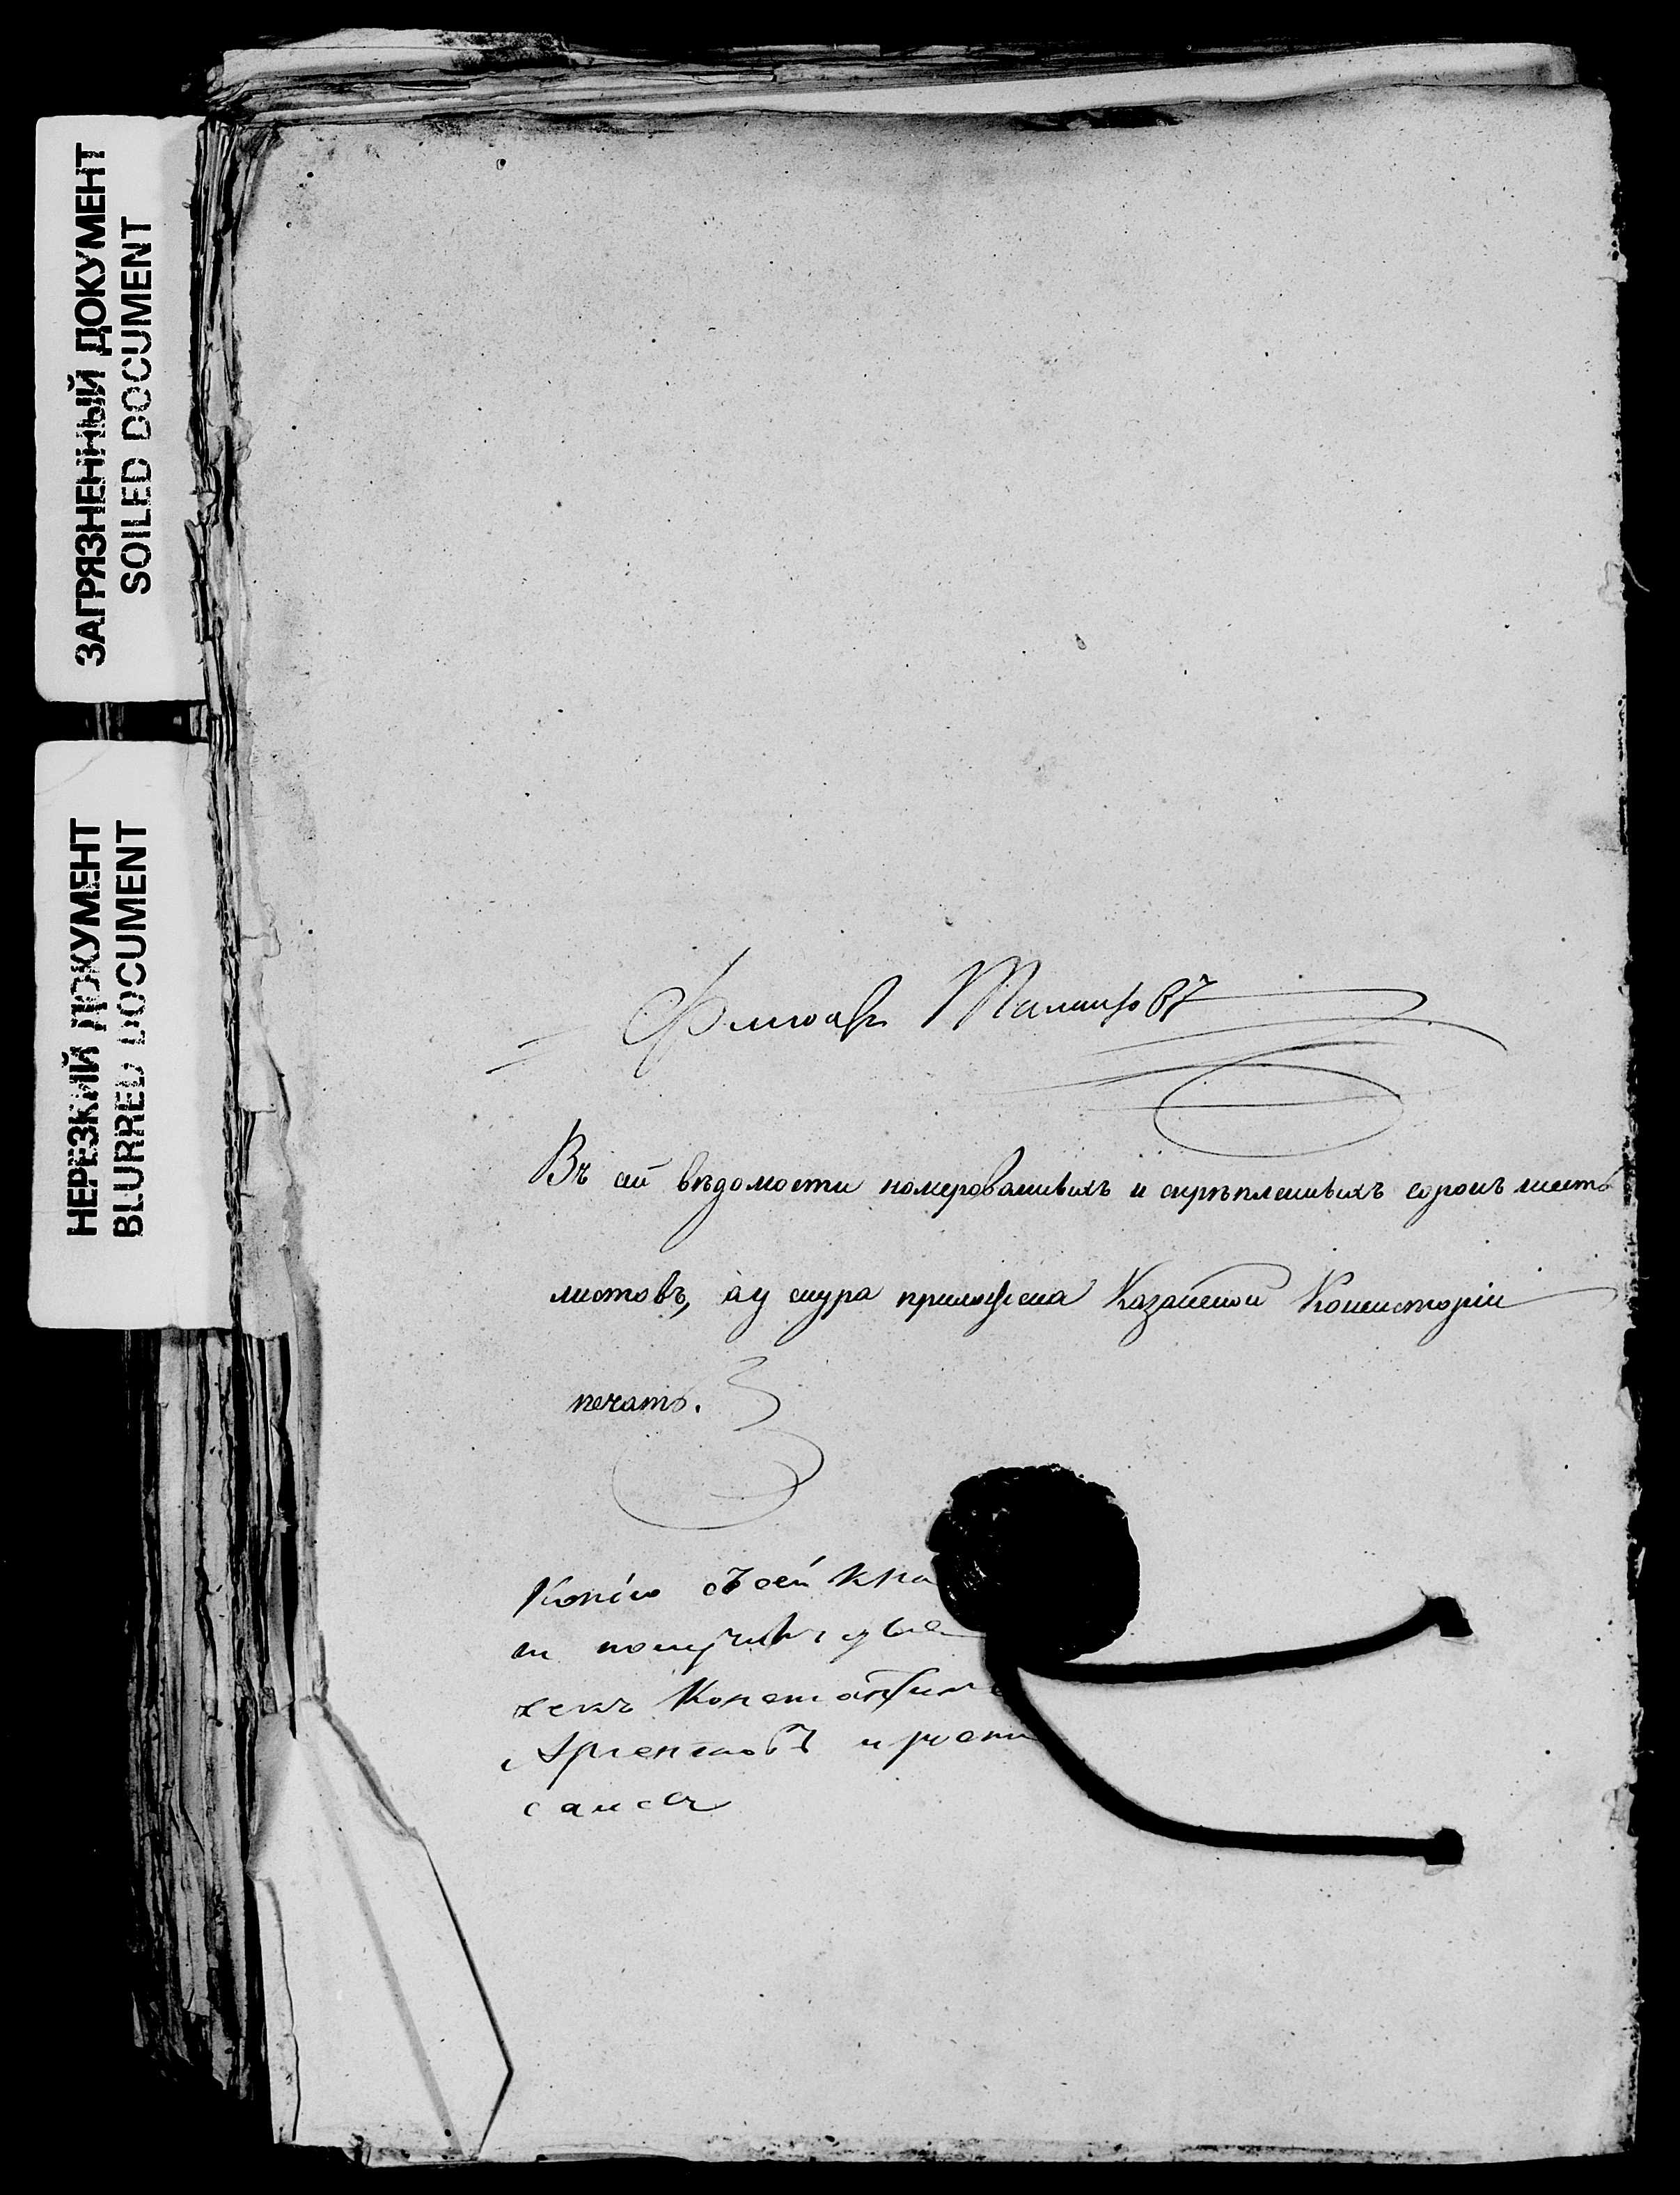 ЗАГРЯЗНЕННЫЙ ДОКУМЕНТ
SOILED DOCUMENT
НЕРЕЗКИЙ ДОКУМЕНТ
BLURRED DOCUMENT
Въ сей вѣдомости номерованныхъ и скрѣпленныхъ сорокъ шесть
листовъ, а у снура приложена Казанской Консисторіи
печать.
Копію съ сей
получилъ
Константинъ
и роспи
сался